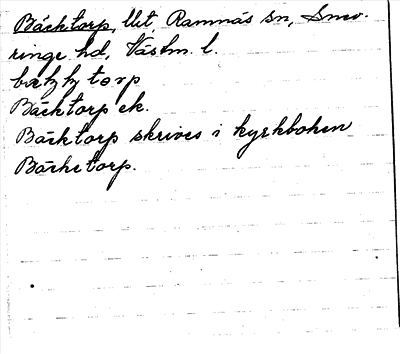 Bäcktorp, llt, Ramnäs sn, Snev-
ringe hd, Västm. l.
Bäcktorp ek.
Bäcktorp skrives i kyrkboken
Bäcketorp.